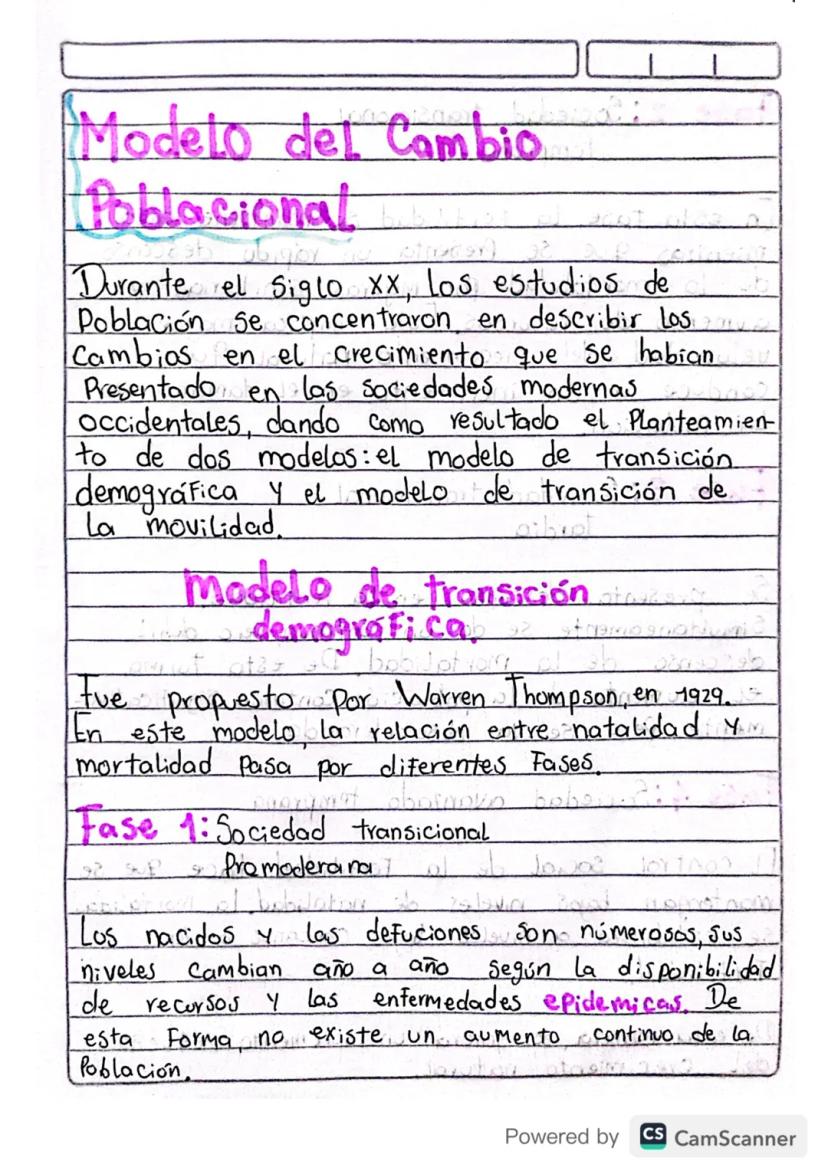 Modelo del Cambio
Poblacional
Durante el siglo XX, los estudios de
Población se concentraron en describir los
Cambios en el crecimiento que se habian
Presentado en las sociedades modernas
occidentales, dando como resultado el Planteamien-
to de dos modelos: el modelo de transición
demográfica y el modelo de transición de
la movilidad.
Modelo de transición
demográfica.
Fue propuesto Por Warren Thompson, en 1929.
En este modelo, la relación entre natalidad y
mortalidad Pasa por diferentes Fases.
Fase 1: Sociedad transicional
Promoderana
Los nacidos y las defuciones son númerosos, sus
niveles cambian año a año según la disponibilidad
de recursos y las enfermedades epidemicas. De
esta Forma, no existe un aumento continuo de la
Población.
Powered by CS CamScanner